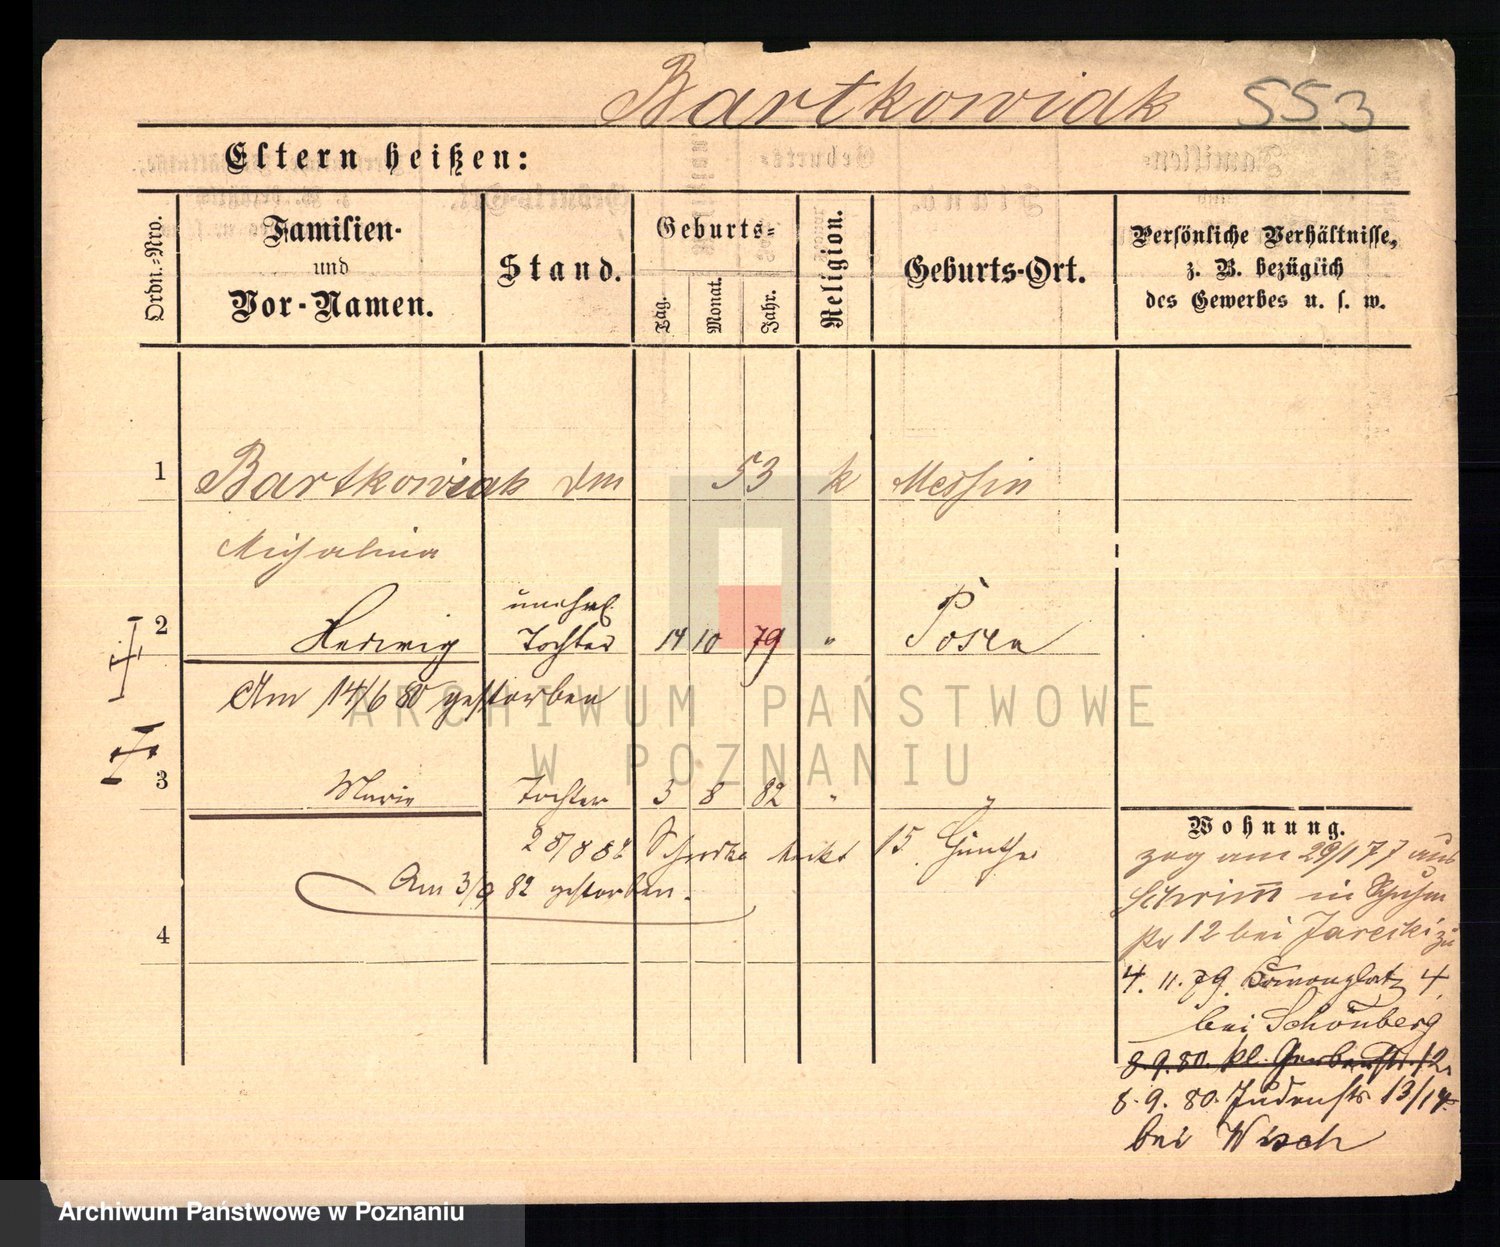 Bartkowiak 553
Eltern heißen:
Ordn.-Nro.
Familien-
und
Vor-Namen.
Stand.
Geburts-
Tag.
Monat.
Jahr.
Religion.
Geburts-Ort.
Persönliche Verhältnisse,
z. B. bezüglich
des Gewerbes u. s. w.
1 Bartkowiak 53 k
Michalina
unehel.
2 Hedwig Tochter 14 10 79 " Posen
Am 14/6 80 gestorben
ARCHIWUM PAŃSTWOWE
W POZNANIU
3 Marie Tochter 3 8 82 " "
28/8 82 15
Am 3/9 82 gestorben.
4
Wohnung.
zog am 29/1 77 aus
Schrimm in
12 bei Jarecki zu
4. 11. 79. 4
bei Schönberg
8. 9. 80. kl. Gerberstr. 12
8. 9. 80. Judenstr 13/14
bei Wisch
Archiwum Państwowe w Poznaniu